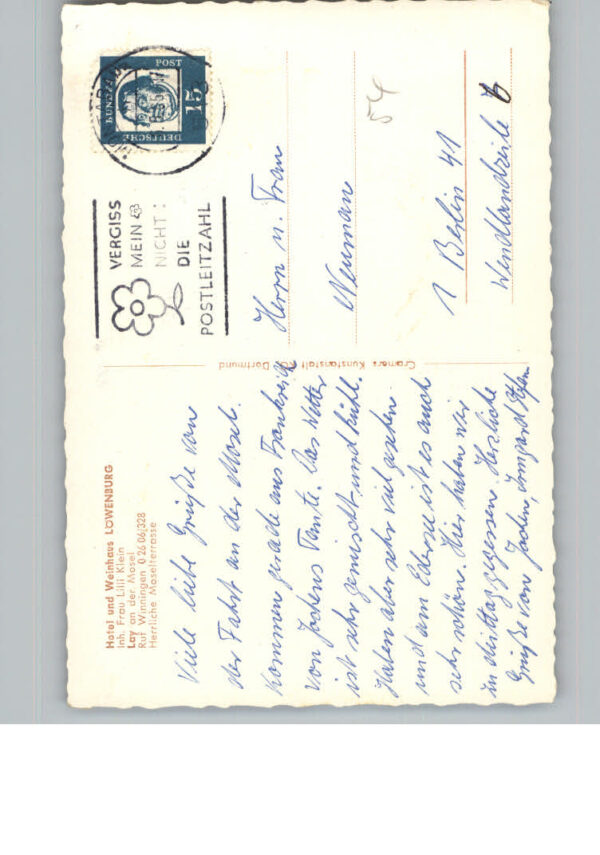 Hotel und Weinhaus LÖWENBURG
Inh. Frau Lilli Klein
Lay an der Mosel
Ruf Winningen 0 26 06/328
Herrliche Moselterrasse
Viele liebe Grüße von
der Fahrt an der Mosel.
Kommen gerade aus Frankreich
von Jochens Tante. Das Wetter
ist sehr gemischt und kühl.
Haben aber sehr viel gesehen
und am Edersee ist es auch
sehr schön. Hier haben wir
zu Mittag gegessen. Herzliche
Grüße von Jochen, Irmgard
Cramers Kunstanstalt KG, Dortmund
DEUTSCHE
BUNDESPOST
15
VERGISS
MEIN
NICHT:
DIE
POSTLEITZAHL
54
Herrn u. Frau
Neumann
1 Berlin 41
Wendlandzeile